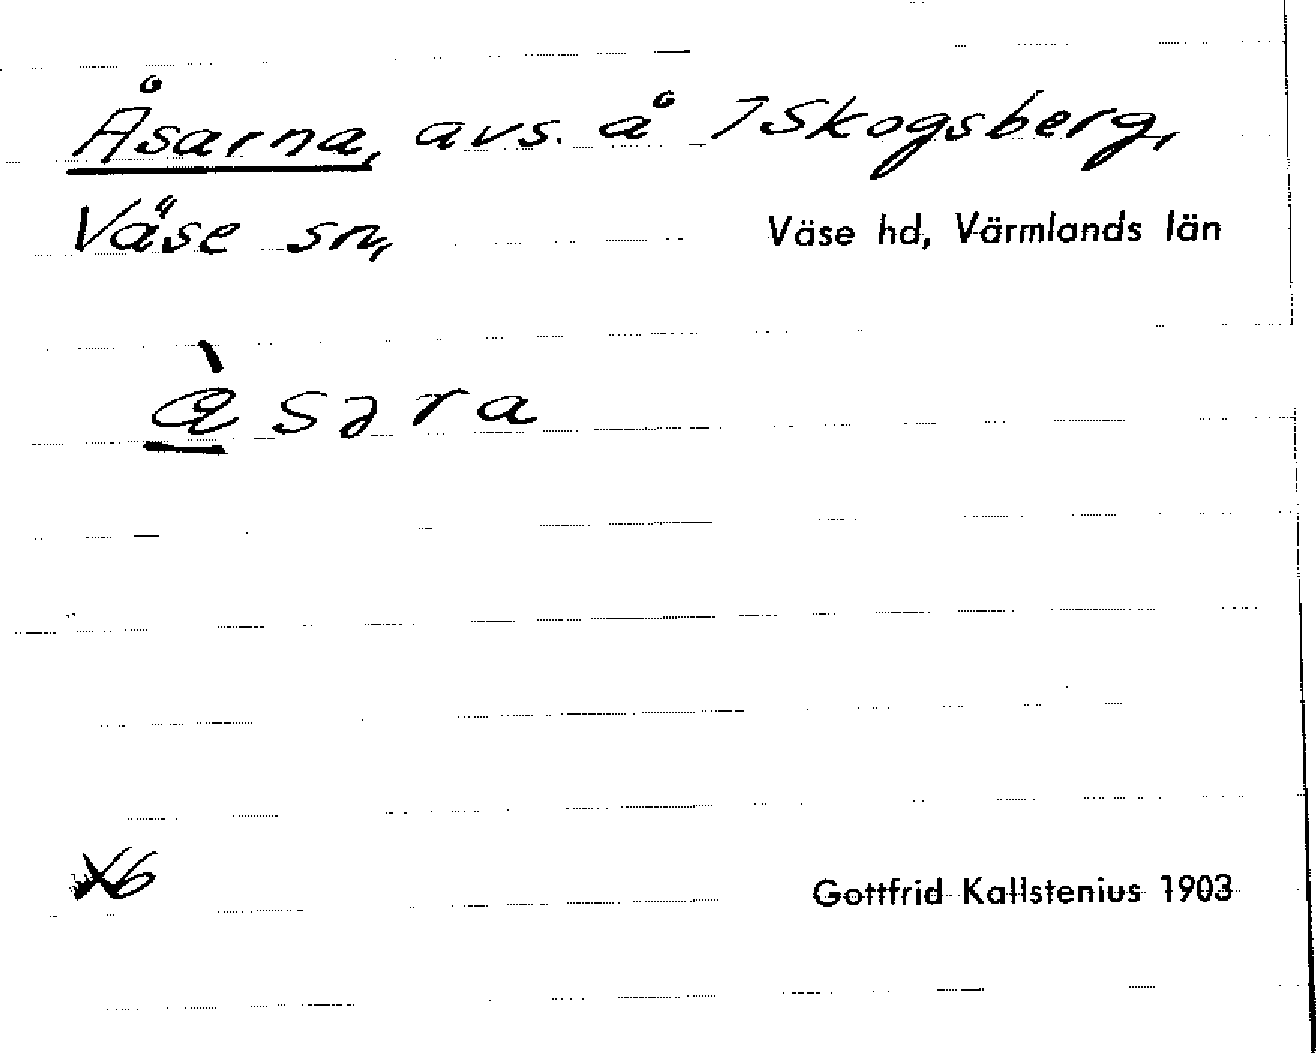 Åsarna, avs. å 7 Skogsberg,
Väse sn, Väse hd, Värmlands län
Gottfrid Kallstenius 1903